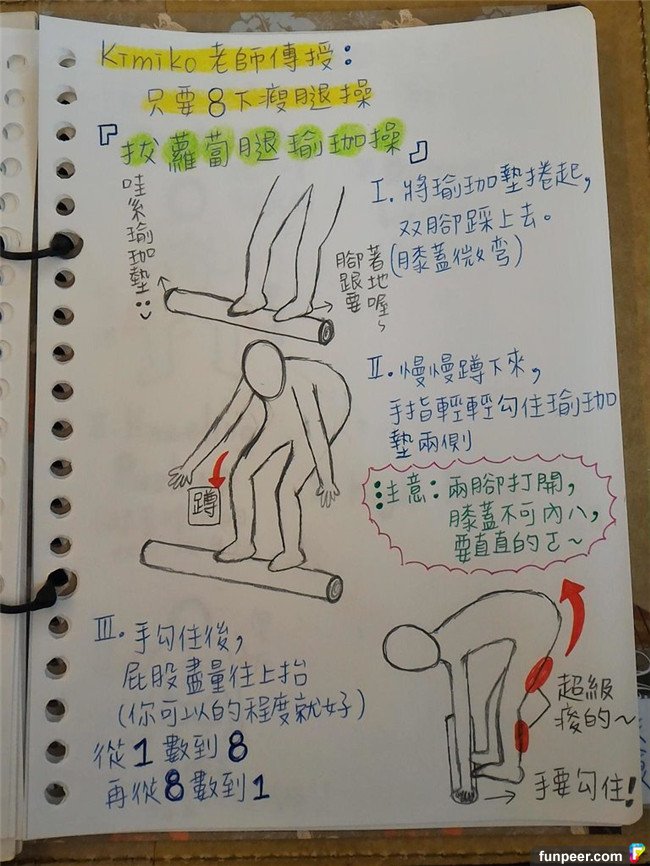 Kimiko 老師傳授：
只要8下瘦腿操
『拔蘿蔔腿瑜珈操』
哇系瑜珈墊
I. 將瑜珈墊捲起，
双腳踩上去。
(膝蓋微彎)
腳跟要
著地喔~
II. 慢慢蹲下來，
手指輕輕勾住瑜珈
墊兩側
蹲
注意：兩腳打開，
膝蓋不可內八，
要直直的ㄛ~
III. 手勾住後，
屁股盡量往上抬
(你可以的程度就好)
從1數到8
再從8數到1
超級
痠的~
手要勾住！
funpeer.com